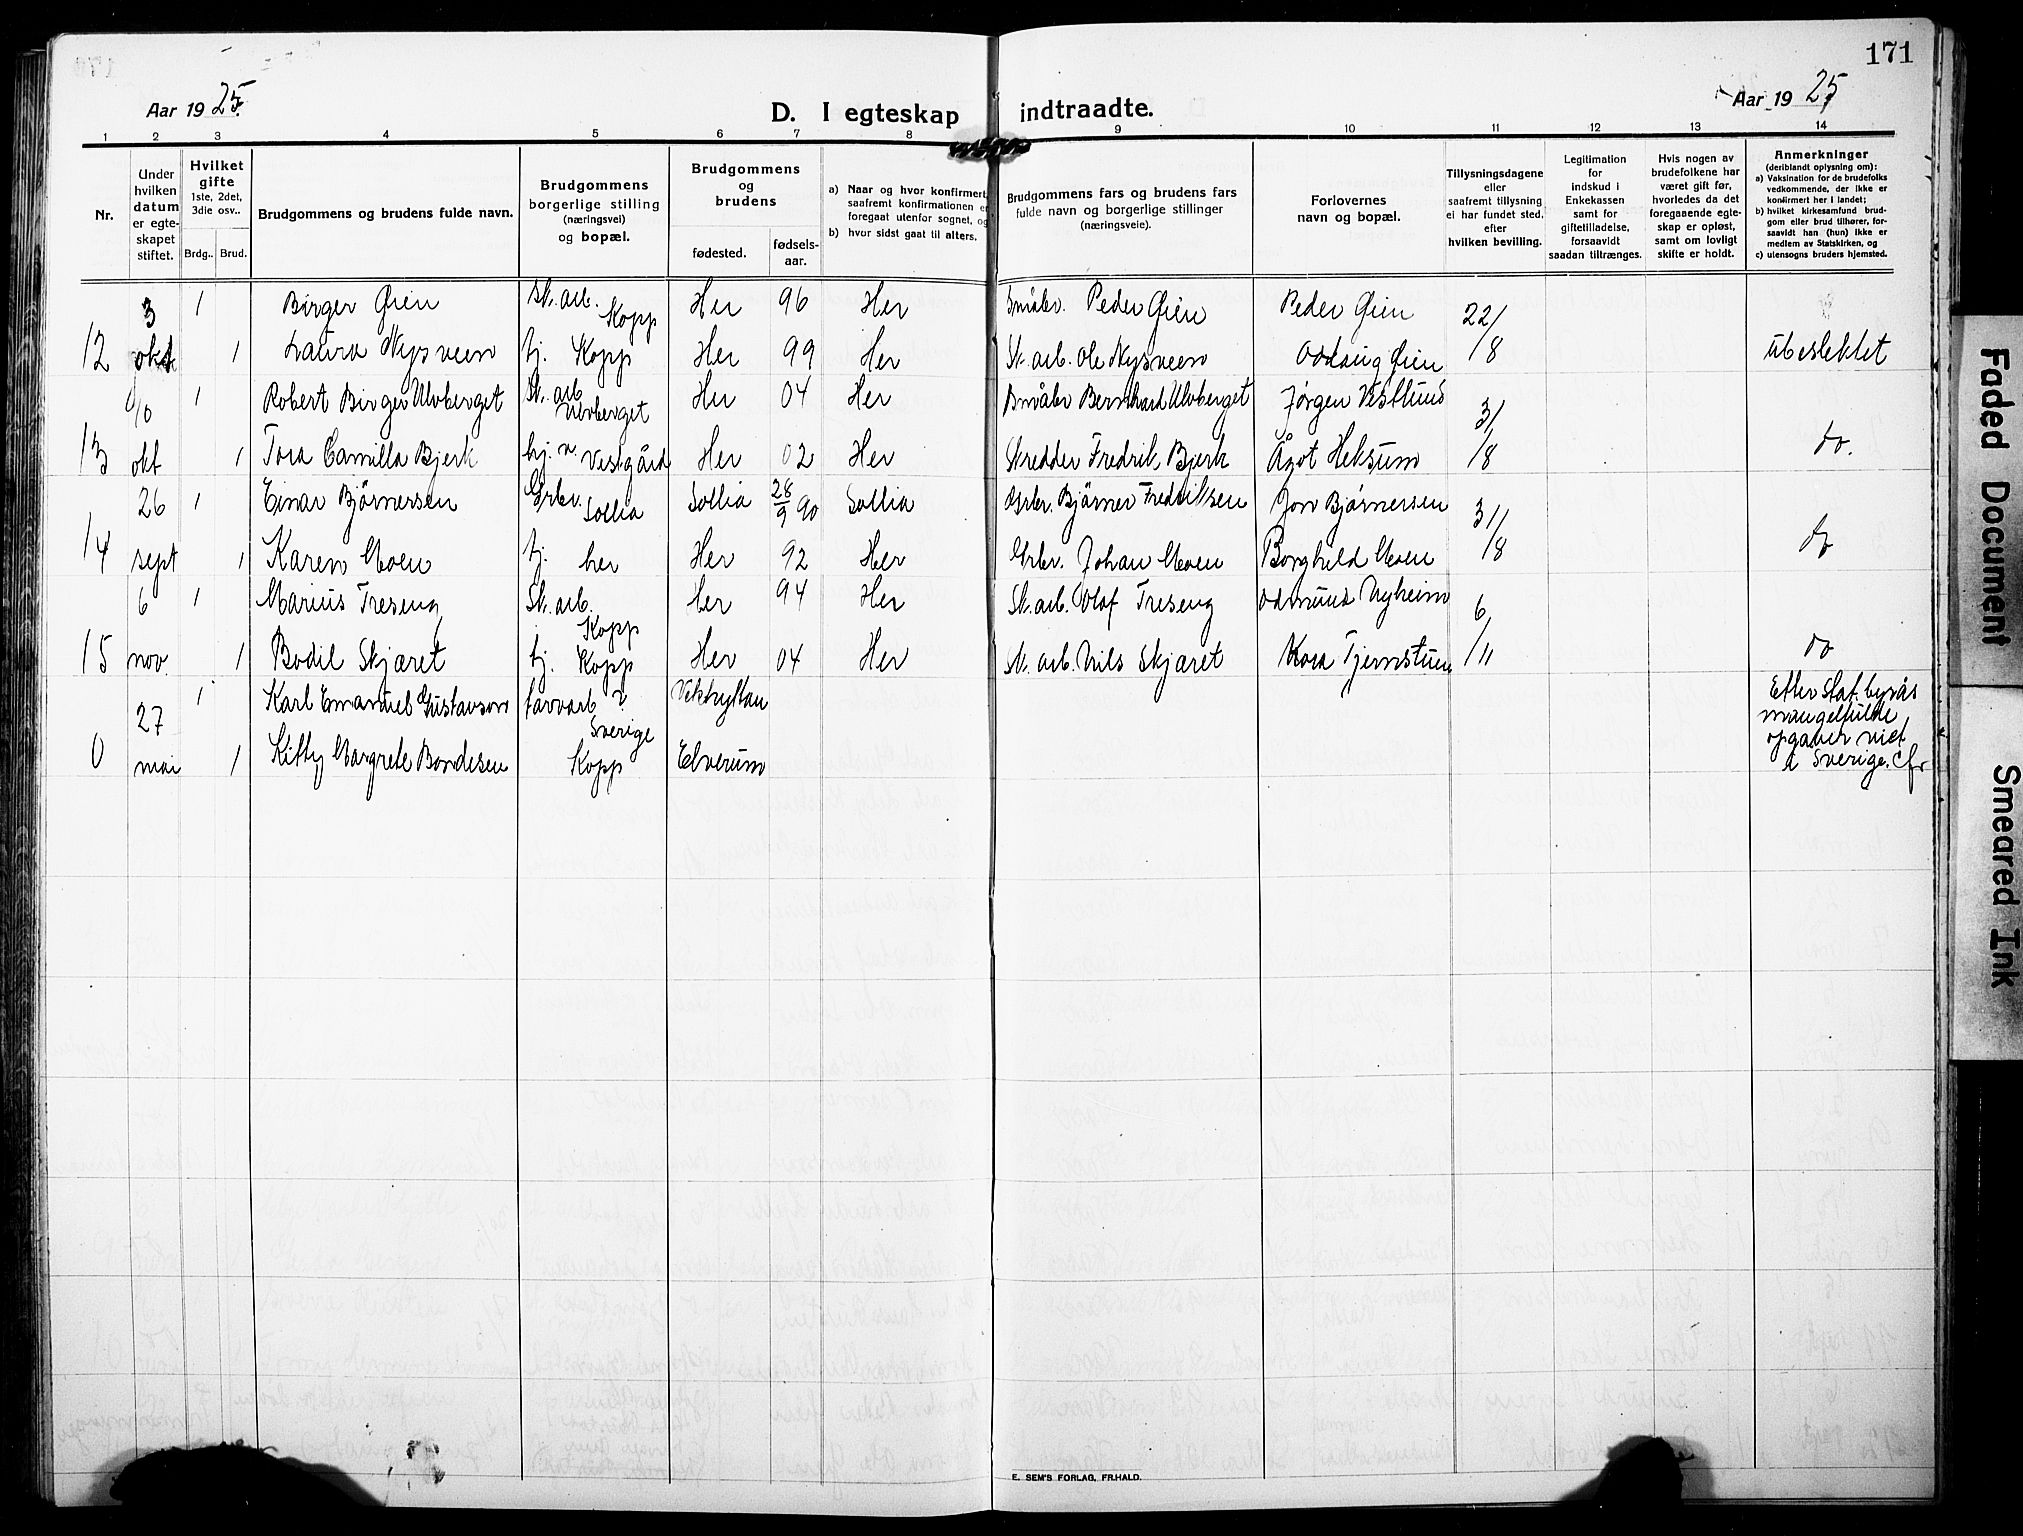 171
Aar 1925.
D. I egteskap indtraadte.
Aar 1925
1 2 3 4 5 6 7 8 9 10 11 12 13 14
Nr.
Under hvilken datum er egteskapet stiftet.
Hvilket gifte
1ste, 2det, 3die osv..
Brdg.. Brud.
Brudgommens og brudens fulde navn.
Brudgommens borgerlige stilling (næringsvei) og bopæl.
Brudgommens og brudens
fødested. fødsels-aar.
a) Naar og hvor konfirmert, saafremt konfirmationen er foregaat utenfor sognet, og
b) hvor sidst gaat til alters.
Brudgommens fars og brudens fars fulde navn og borgerlige stillinger (næringsveie).
Forlovernes navn og bopæl.
Tillysningsdagene eller saafremt tillysning ei har fundet sted, efter hvilken bevilling.
Legitimation for indskud i Enkekassen samt for giftetilladelse, forsaavidt saadan tiltrænges.
Hvis nogen av brudefolkene har været gift før, hvorledes da det foregaaende egteskap er opløst, samt om lovligt skifte er holdt.
Anmerkninger
(deriblandt oplysning om):
a) Vaksination for de brudefolks vedkommende, der ikke er konfirmert her i landet;
b) hvilket kirkesamfund brudgom eller brud tilhører, forsaavidt han (hun) ikke er medlem av Statskirken, og
c) utensogns bruders hjemsted.
3 1 Birger Øien Sk. arb. Kopp Her 96 Her Småbr. Peder Øien Peder Øien 22/
12 okt 1 Laura Nysveen hj. Kopp Her 99 Her Sk. arb. Ole Nysveen Oddaug Øien /8 ubeslektet
10 1 Robert Birger Ulvberget Sk. arb Ulvberget Her 04 Her Småbr Bernhard Ulvberget Jørgen Vestlund 3/
13 okt 1 Tora Camilla Bjerk hj. Vestgård Her 02 Her Skredder Fredrik Bjerk Ågot Heksum /8 do.
26 1 Einar Bjørnersen Grbr. Sollia Sollia 28/9 90 Sollia Grbr. Bjørner Fredriksen Jon Bjørnersen 31/
14 sept 1 Karen Moen hj. her Her 92 Her Grbr. Johan Moen Borghild Moen /8 do
6 1 Marius Treseng Sk. arb. Kopp Her 94 Her Sk. arb. Olof Treseng Odmund Nyheim 6
15 nov. 1 Bodil Skjæret hj. Kopp Her 04 Her Sk. arb. Nils Skjæret Kora Tjernstuen /11 do
27 1 Karl Emanuel Gustavson tarvarb ? Sverige Vekhyttan Efter Stat. byrås mangelfulde
0 mai 1 Kitty Margrete Bondesen Kopp Elverum opgaver viet i Sverige. Cfr
E. SEM'S FORLAG, FR.HALD.
Faded Document
Smeared Ink